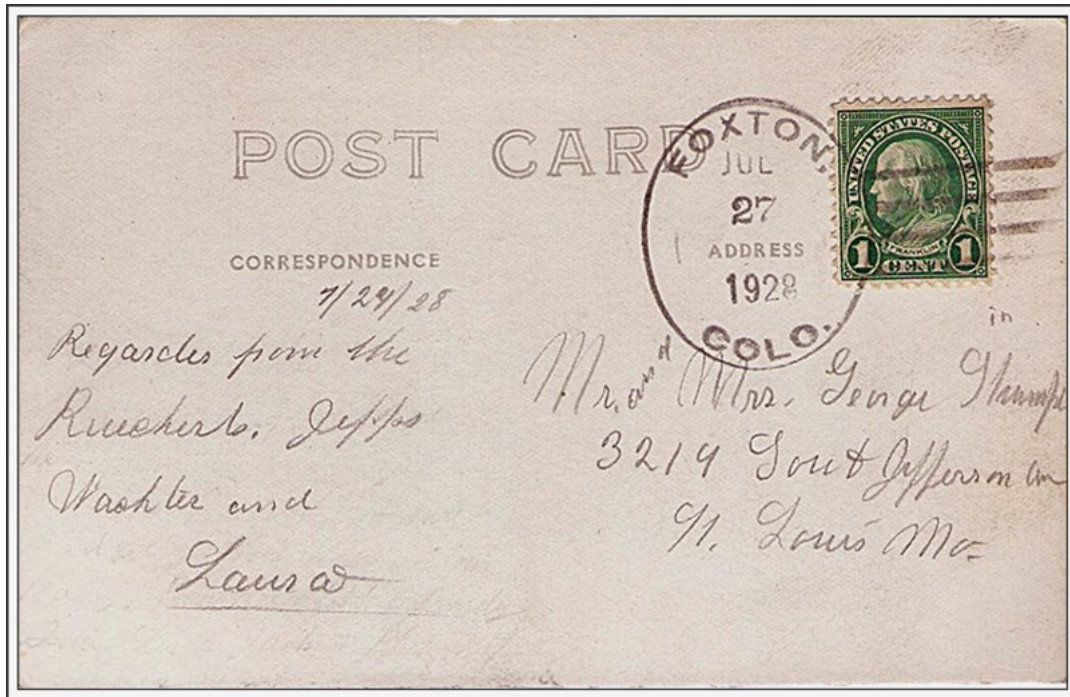 POST CARD
FOXTON,
JUL
27
1928
COLO.
UNITED STATES POSTAGE
FRANKLIN
1 CENT 1
CORRESPONDENCE
ADDRESS
in
7/24/28
Regardes from the
Rueckerts. Jepps
Wachter and
Laura
Mr. and Mrs. George Stumpf
3214 Sout Jefferson av
St. Louis Mo.